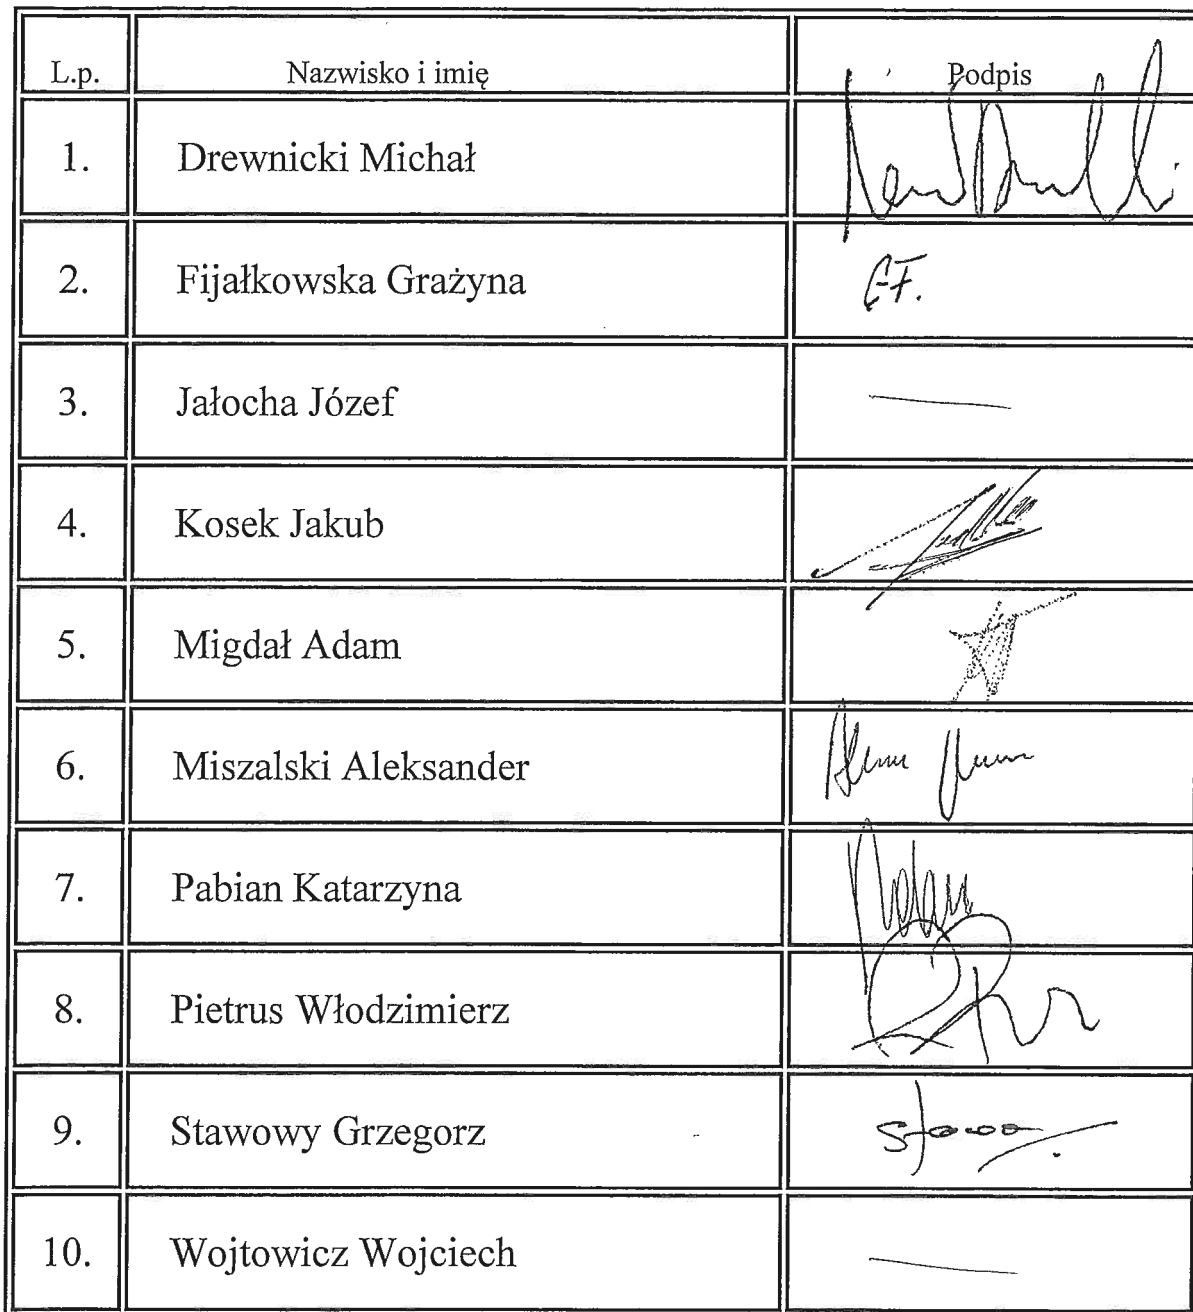 L.p. Nazwisko i imię Podpis
1. Drewnicki Michał
2. Fijałkowska Grażyna G.F.
3. Jałocha Józef —
4. Kosek Jakub
5. Migdał Adam
6. Miszalski Aleksander
7. Pabian Katarzyna
8. Pietrus Włodzimierz
9. Stawowy Grzegorz
10. Wojtowicz Wojciech —